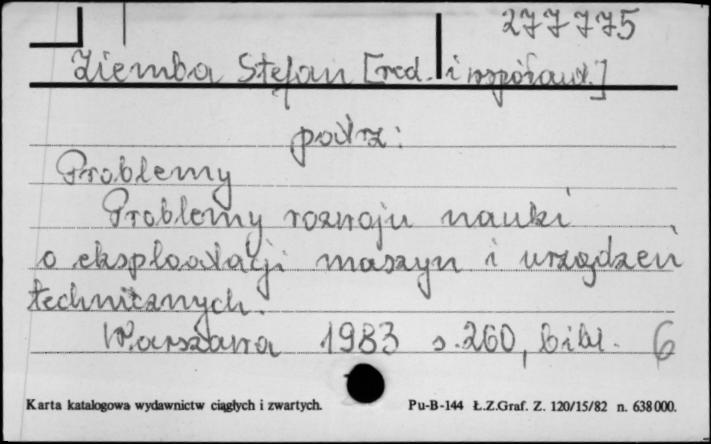 277775
Ziemba Stefan [red. i współaut.]
patrz:
Problemy
Problemy rozwoju nauki
o eksploatacji maszyn i urządzeń
technicznych.
Warszawa 1983 s. 260, bibl. 6
Karta katalogowa wydawnictw ciągłych i zwartych. Pu-B-144 Ł.Z.Graf. Z. 120/15/82 n. 638000.